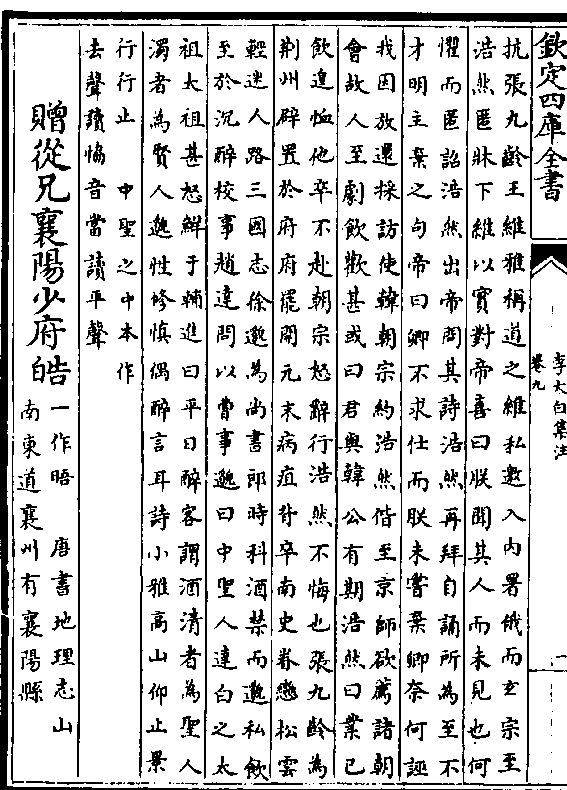 欽定四庫全書
李太白集注
卷九
抗張九齡王維雅稱道之維私邀入内署俄而玄宗至
浩然匿牀下維以實對帝喜曰朕聞其人而未見也何
懼而匿詔浩然出帝問其詩浩然再拜自誦所為至不
才明主棄之句帝曰卿不求仕而朕未嘗棄卿奈何誣
我因放還採訪使韓朝宗約浩然偕至京師欲薦諸朝
會故人至劇飲歡甚或曰君與韓公有期浩然曰業已
飲遑恤他卒不赴朝宗怒辭行浩然不悔也張九齡為
荆州辟置於府府罷開元末病疽背卒南史眷戀松雲
輕迷人路三國志徐邈為尚書郎時科酒禁而邈私飲
至於沉醉校事趙達問以曹事邈曰中聖人達白之太
祖太祖甚怒鮮于輔進曰平日醉客謂酒清者為聖人
濁者為賢人邈性修慎偶醉言耳詩小雅高山仰止景
行行止　中聖之中本作
去聲讀恊音當讀平聲
贈從兄襄陽少府皓
一作晤　唐書地理志山
南東道襄州有襄陽縣